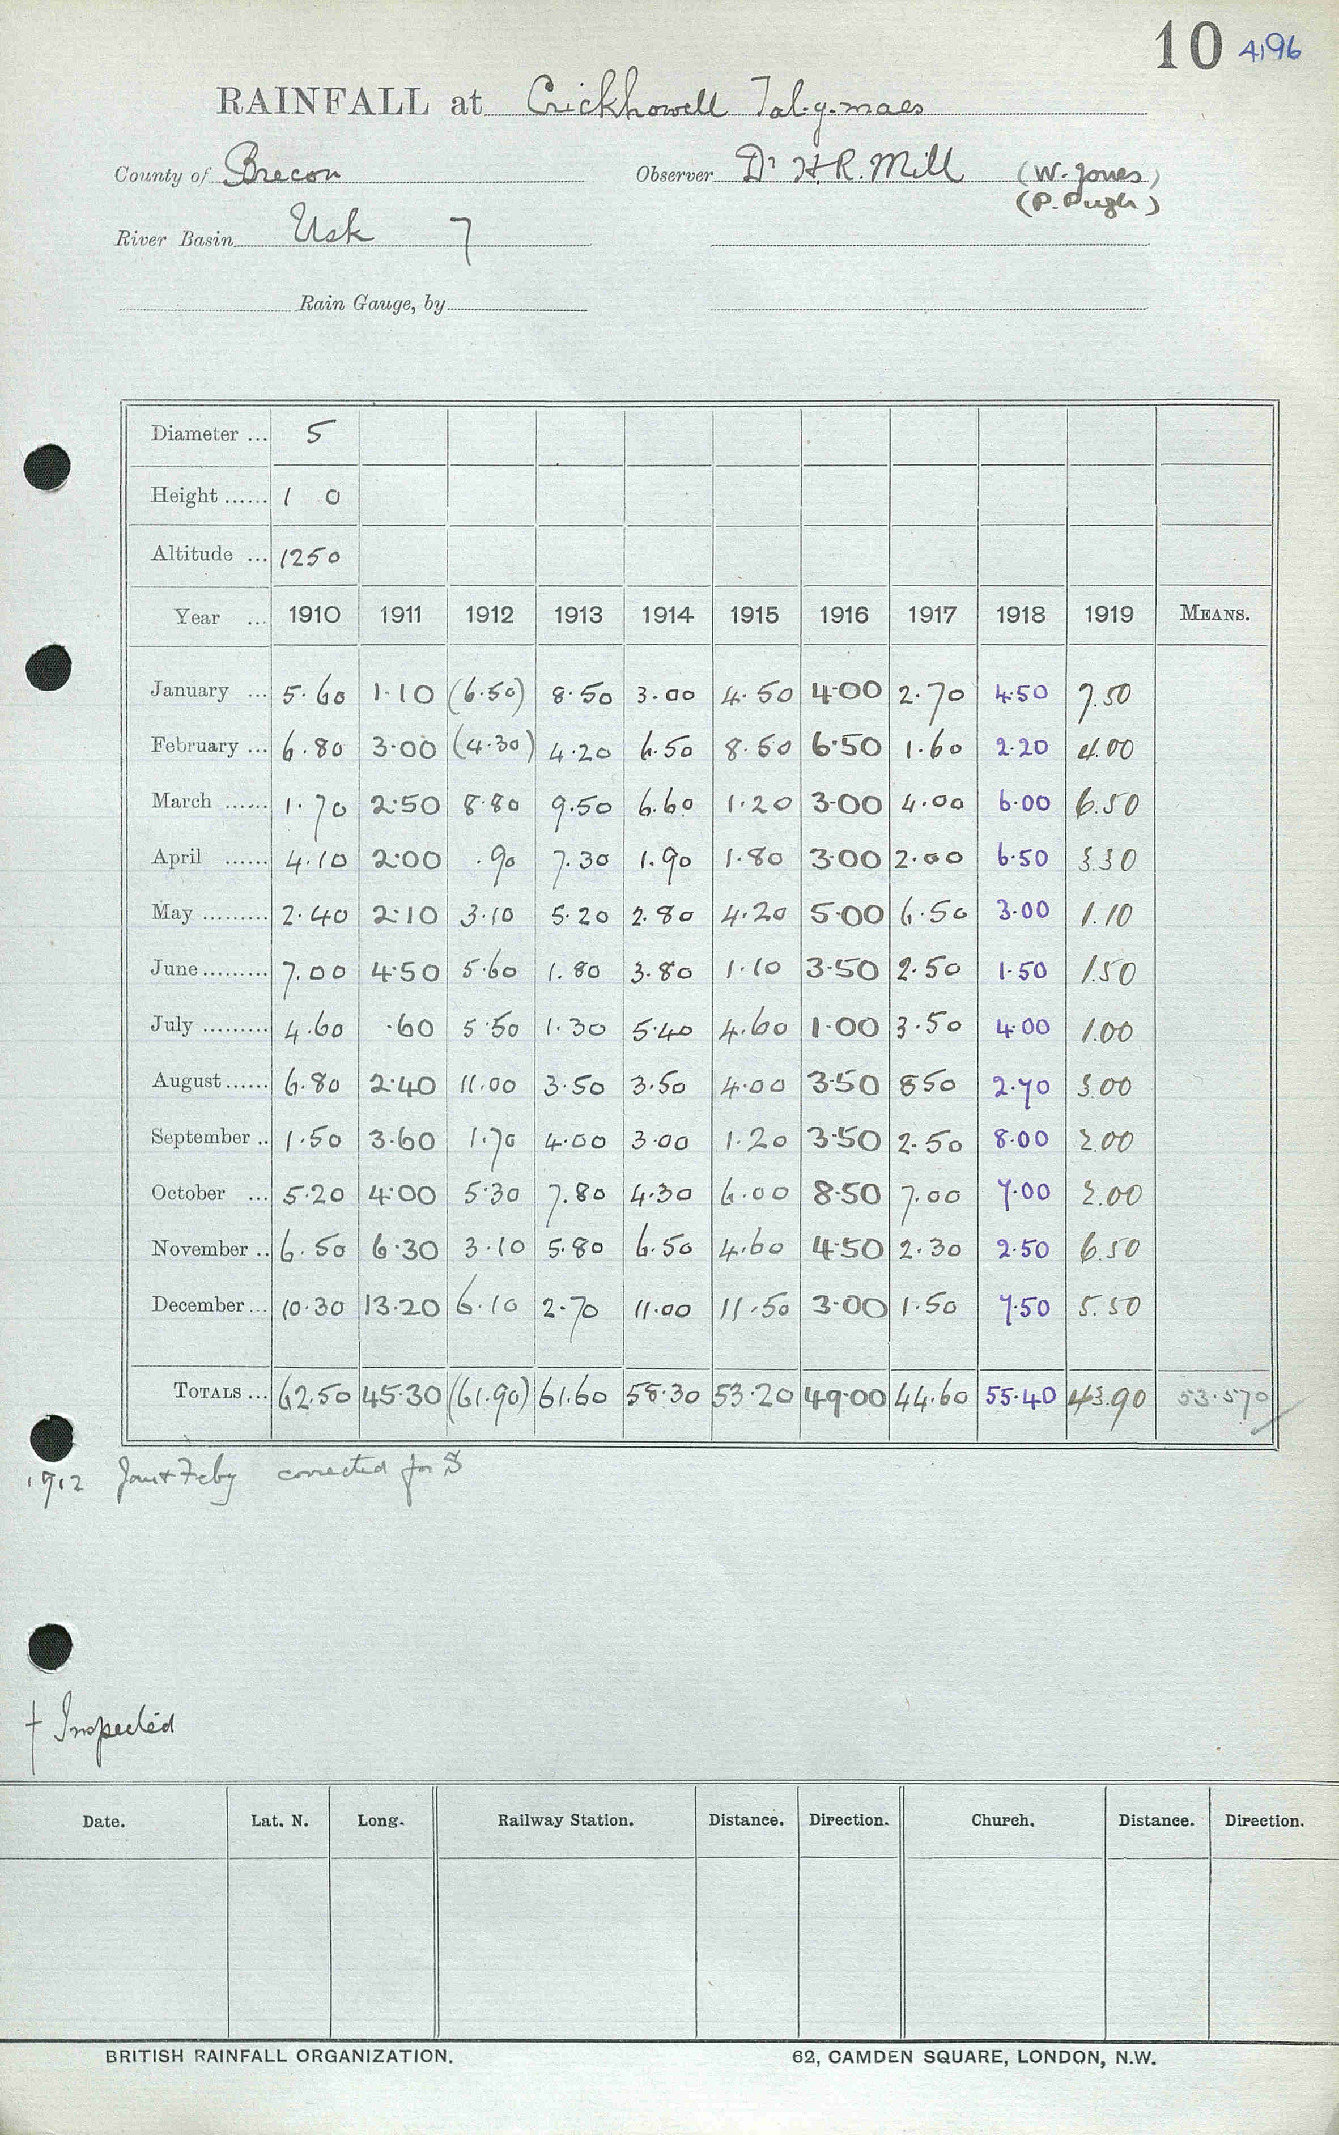 10 4196
RAINFALL at Crickhowell Tal-y-maes
County of Brecon Observer Dr H.R. Mill (W. Jones)
(P. Pugh)
River Basin Usk 7
Rain Gauge, by
Diameter ... 5
Height ...... 1 0
Altitude ... 1250
Year ... 1910 1911 1912 1913 1914 1915 1916 1917 1918 1919 MEANS.
January ... 5.60 1.10 (6.50) 8.50 3.00 4.50 4.00 2.70 4.50 7.50
February ... 6.80 3.00 (4.30) 4.20 6.50 8.50 6.50 1.60 2.20 4.00
March ...... 1.70 2.50 8.80 9.50 6.60 1.20 3.00 4.00 6.00 6.50
April ...... 4.10 2.00 .90 7.30 1.90 1.80 3.00 2.00 6.50 3.30
May ......... 2.40 2.10 3.10 5.20 2.80 4.20 5.00 6.50 3.00 1.10
June ......... 7.00 4.50 5.60 1.80 3.80 1.10 3.50 2.50 1.50 1.50
July ......... 4.60 .60 5.50 1.30 5.40 4.60 1.00 3.50 4.00 1.00
August ...... 6.80 2.40 11.00 3.50 3.50 4.00 3.50 8.50 2.70 3.00
September .. 1.50 3.60 1.70 4.00 3.00 1.20 3.50 2.50 8.00 2.00
October ... 5.20 4.00 5.30 7.80 4.30 6.00 8.50 7.00 7.00 2.00
November .. 6.50 6.30 3.10 5.80 6.50 4.60 4.50 2.30 2.50 6.50
December ... 10.30 13.20 6.10 2.70 11.00 11.50 3.00 1.50 7.50 5.50
TOTALS ... 62.50 45.30 (61.90) 61.60 58.30 53.20 49.00 44.60 55.40 43.90 53.570
1912 Jan + Feby corrected for S
† Inspected
Date. Lat. N. Long. Railway Station. Distance. Direction. Church. Distance. Direction.
BRITISH RAINFALL ORGANIZATION. 62, CAMDEN SQUARE, LONDON, N.W.